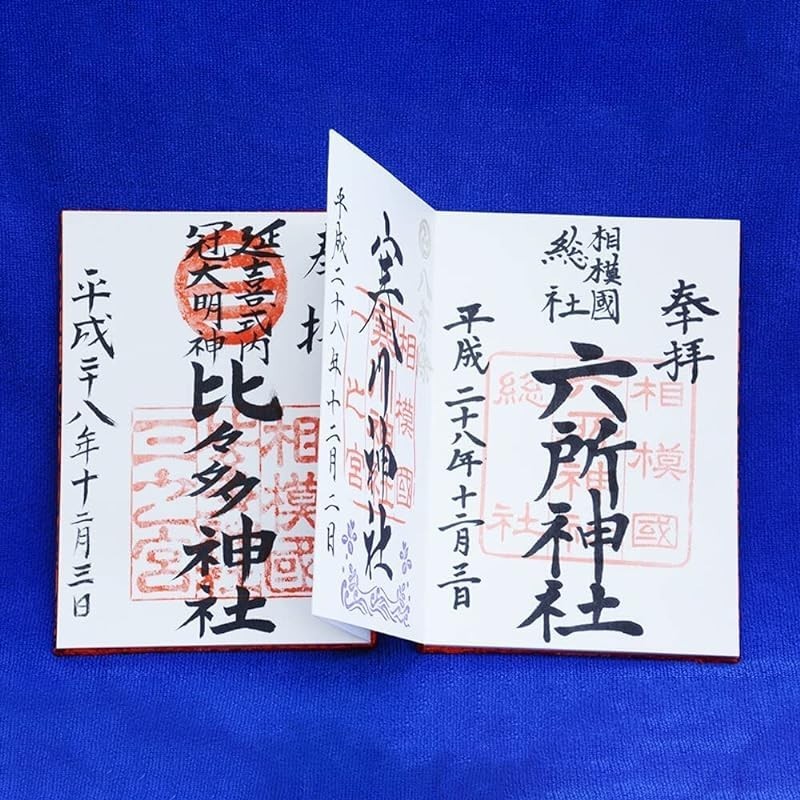 奉拝
相模國
総社
六所神社
平成二十八年十二月三日
相模國
六所神社
総社
八方除
寒川神社
相模國
一之宮
平成二十八年十二月二日
奉拝
延喜式内
冠大明神
比々多神社
相模國
三之宮
平成二十八年十二月三日